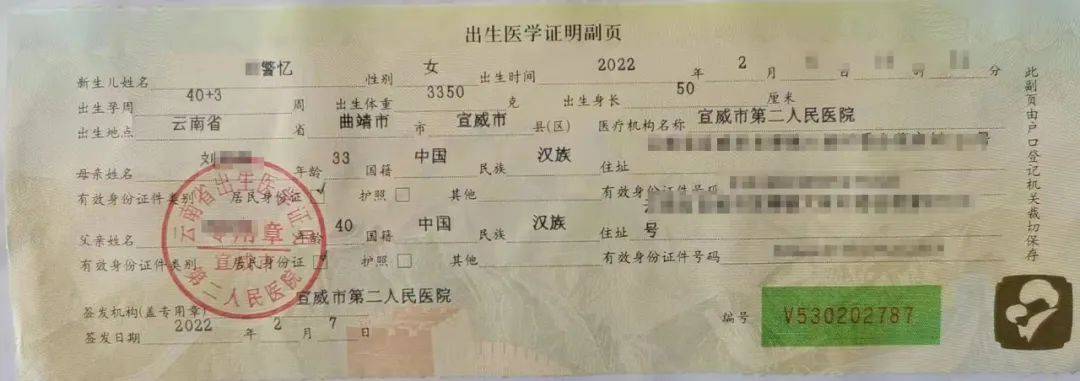 出生医学证明副页
新生儿姓名 警忆 性别 女 出生时间 2022 年 2 月 时 分
出生孕周 40+3 周 出生体重 3350 克 出生身长 50 厘米
出生地点 云南省 省 曲靖市 市 宣威市 县(区) 医疗机构名称 宣威市第二人民医院
母亲姓名 刘 年龄 33 国籍 中国 民族 汉族 住址 号
有效身份证件类别 居民身份证 ✓ 护照 □ 其他 有效身份证件号码
父亲姓名 年龄 40 国籍 中国 民族 汉族 住址 号
有效身份证件类别 居民身份证 ✓ 护照 □ 其他 有效身份证件号码
签发机构(盖专用章) 宣威市第二人民医院
签发日期 2022 年 2 月 7 日
编号 V530202787
此副页由户口登记机关裁切保存
云南省出生医学证
专用章
宣威市
第二人民医院